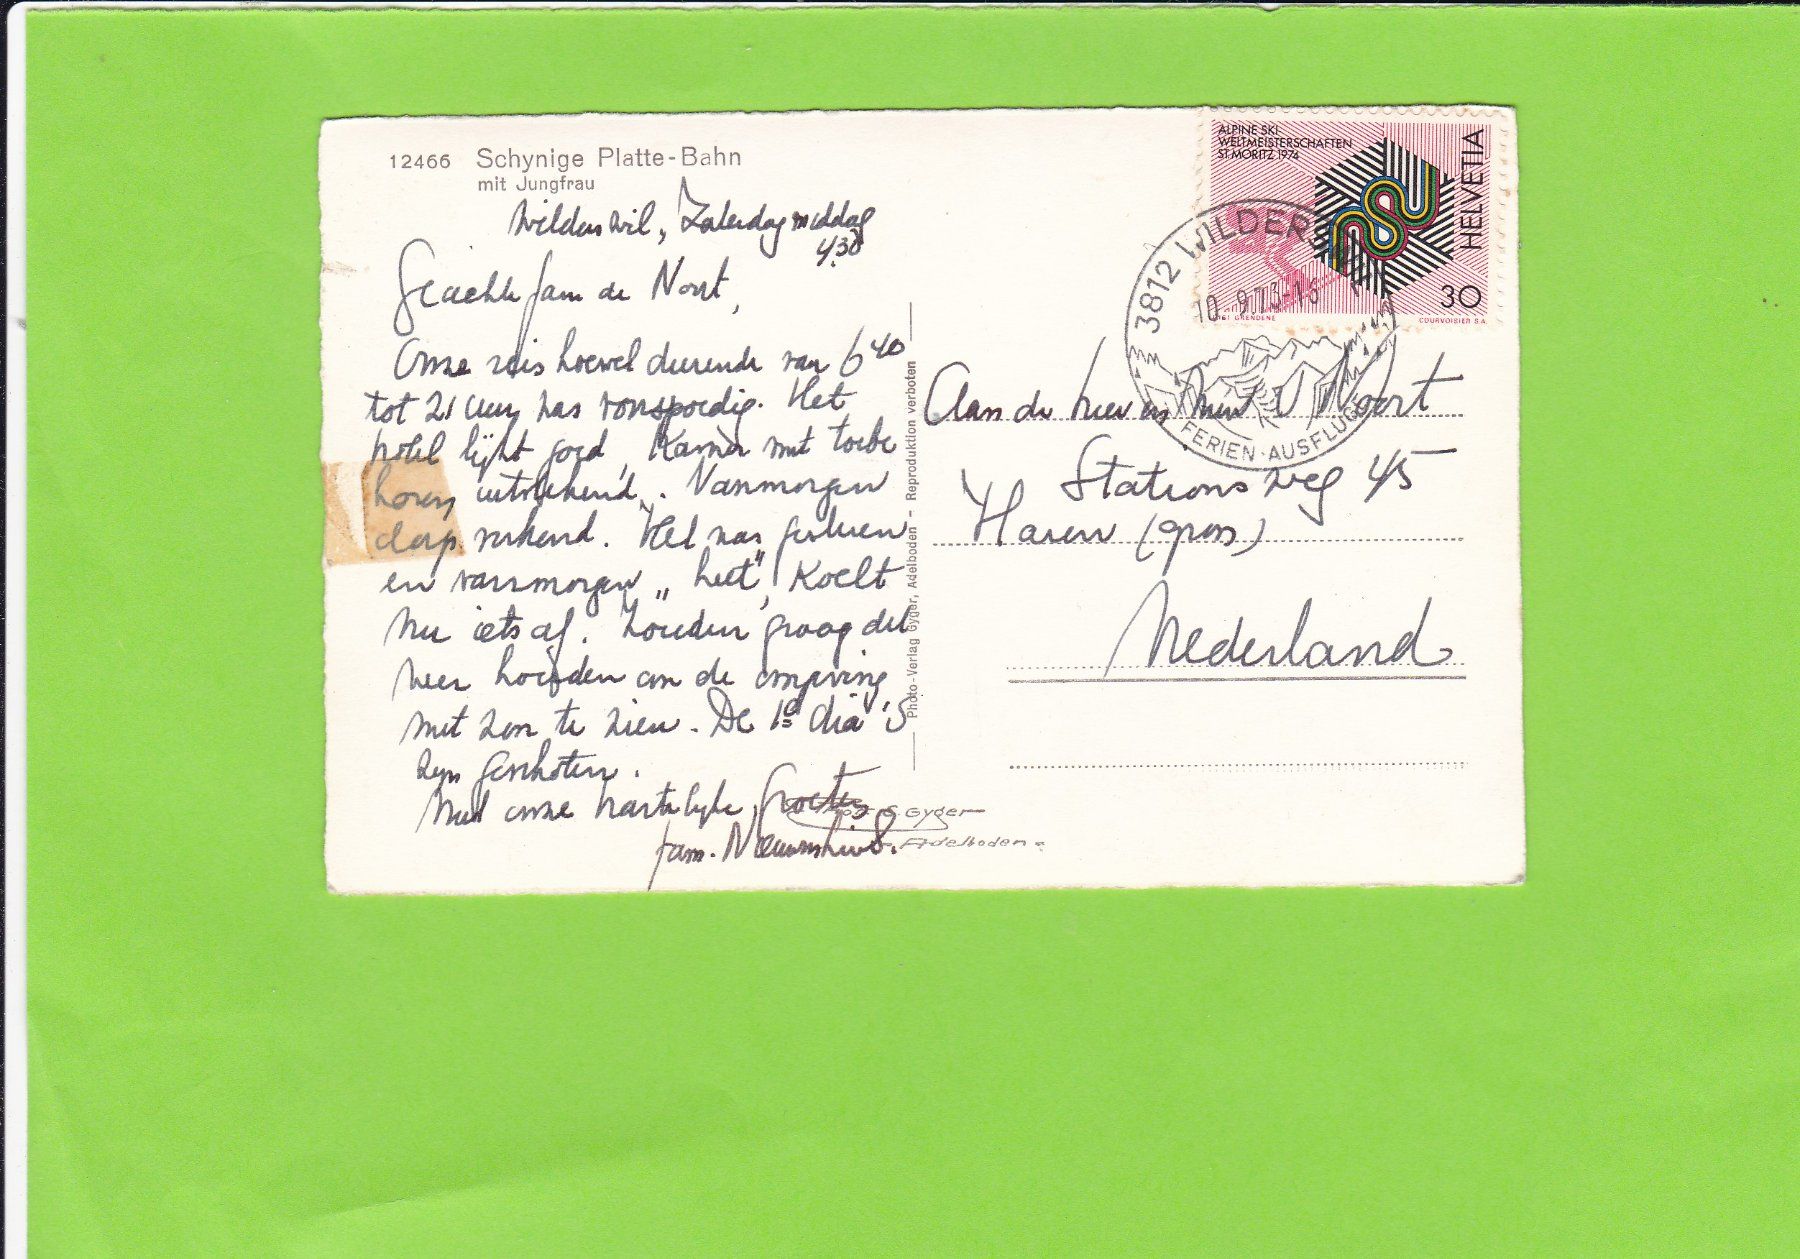 12466 Schynige Platte-Bahn
mit Jungfrau
Wilderswil, Zaterdagmiddag
4.30
Geachte fam de Noort,
Onze reis hoewel durende van 6 40
tot 21 uur was voorspoedig. Het
hotel lijkt goed, Kamer met toebe
horen uitstekend. Vanmorgen
dorp verkend. Het was gisteren
en vanmorgen „heet", Koelt
nu iets af. Zouden graag dit
weer houden om de omgeving
met zon te zien. De 1e dia's
zijn geschoten.
Met onze hartelijke groeten
fam.
Photo-Verlag Gyger, Adelboden - Reproduktion verboten
Gyger
Adelboden
ALPINE SKI
WELTMEISTERSCHAFTEN
ST. MORITZ 1974
HELVETIA
30
COURVOISIER S.A.
3812 WILDERSWIL
10.9.73-18
FERIEN-AUSFLUGE
Aan de heer en Mevr V Noort
Stationsweg 45
Haren (gron)
Nederland